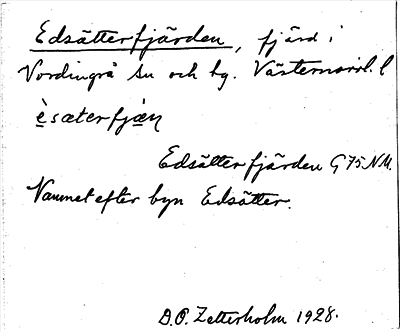 Edsätterfjärden, fjärd i
Nordingrå sn och hg. Västernorrl. l
èsæterfjæ̀ṇ
Edsätterfjärden G 75 N.M.
Namnet efter byn Edsätter.
D.O. Zetterholm 1928.